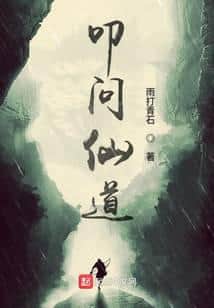 叩问仙道
雨打青石
著